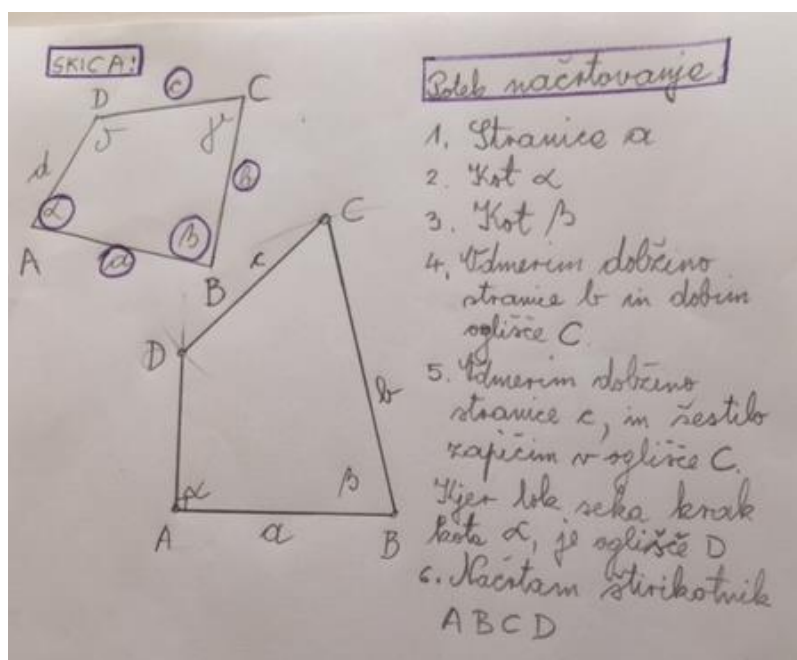 SKICA!
D
c
C
δ
γ
d
b
α
β
A
a
B
C
c
D
b
α
β
A
a
B
Potek načrtovanje!
1. Stranice a
2. Kot α
3. Kot β
4. Odmerim dolžino
stranice b in dobim
oglišče C.
5. Odmerim dolžino
stranice c, in šestilo
zapičim v oglišče C.
Kjer lok seka krak
kota α, je oglišče D
6. Načrtam štirikotnik
A B C D